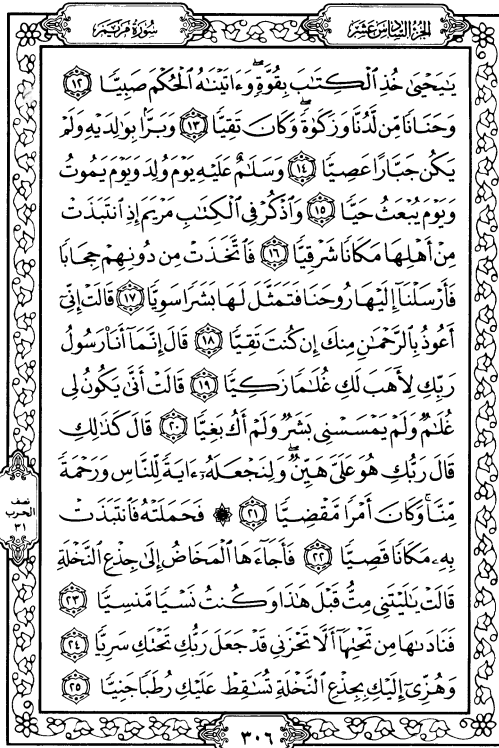 سُورَةُ مَرْيَمَ
الجُزْءُ السَّادِسَ عَشَرَ
يَٰيَحْيَىٰ خُذِ ٱلْكِتَٰبَ بِقُوَّةٍ ۖ وَءَاتَيْنَٰهُ ٱلْحُكْمَ صَبِيًّا ١٢
وَحَنَانًا مِّن لَّدُنَّا وَزَكَوٰةً ۖ وَكَانَ تَقِيًّا ١٣ وَبَرًّۢا بِوَٰلِدَيْهِ وَلَمْ
يَكُن جَبَّارًا عَصِيًّا ١٤ وَسَلَٰمٌ عَلَيْهِ يَوْمَ وُلِدَ وَيَوْمَ يَمُوتُ
وَيَوْمَ يُبْعَثُ حَيًّا ١٥ وَٱذْكُرْ فِى ٱلْكِتَٰبِ مَرْيَمَ إِذِ ٱنتَبَذَتْ
مِنْ أَهْلِهَا مَكَانًا شَرْقِيًّا ١٦ فَٱتَّخَذَتْ مِن دُونِهِمْ حِجَابًا
فَأَرْسَلْنَآ إِلَيْهَا رُوحَنَا فَتَمَثَّلَ لَهَا بَشَرًا سَوِيًّا ١٧ قَالَتْ إِنِّىٓ
أَعُوذُ بِٱلرَّحْمَٰنِ مِنكَ إِن كُنتَ تَقِيًّا ١٨ قَالَ إِنَّمَآ أَنَا۠ رَسُولُ
رَبِّكِ لِأَهَبَ لَكِ غُلَٰمًا زَكِيًّا ١٩ قَالَتْ أَنَّىٰ يَكُونُ لِى
غُلَٰمٌ وَلَمْ يَمْسَسْنِى بَشَرٌ وَلَمْ أَكُ بَغِيًّا ٢٠ قَالَ كَذَٰلِكِ
قَالَ رَبُّكِ هُوَ عَلَىَّ هَيِّنٌ ۖ وَلِنَجْعَلَهُۥٓ ءَايَةً لِّلنَّاسِ وَرَحْمَةً
مِّنَّا ۚ وَكَانَ أَمْرًا مَّقْضِيًّا ٢١ ۞ فَحَمَلَتْهُ فَٱنتَبَذَتْ
بِهِۦ مَكَانًا قَصِيًّا ٢٢ فَأَجَآءَهَا ٱلْمَخَاضُ إِلَىٰ جِذْعِ ٱلنَّخْلَةِ
قَالَتْ يَٰلَيْتَنِى مِتُّ قَبْلَ هَٰذَا وَكُنتُ نَسْيًا مَّنسِيًّا ٢٣
فَنَادَىٰهَا مِن تَحْتِهَآ أَلَّا تَحْزَنِى قَدْ جَعَلَ رَبُّكِ تَحْتَكِ سَرِيًّا ٢٤
وَهُزِّىٓ إِلَيْكِ بِجِذْعِ ٱلنَّخْلَةِ تُسَٰقِطْ عَلَيْكِ رُطَبًا جَنِيًّا ٢٥
نصف
الحزب
٣١
٣٠٦